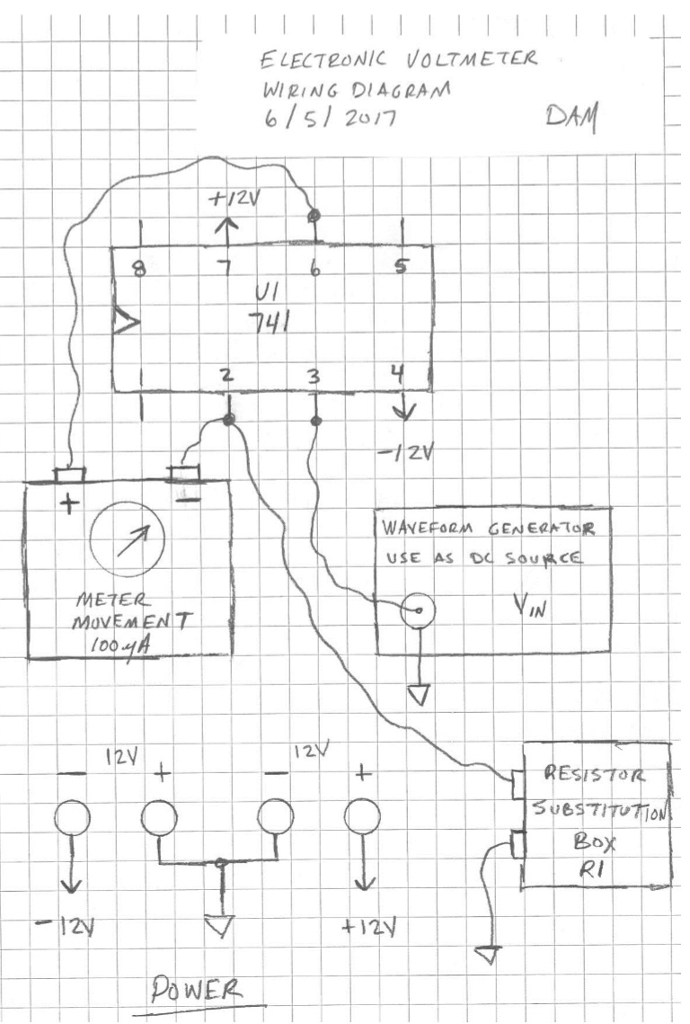 ELECTRONIC VOLTMETER
WIRING DIAGRAM
6/5/2017 DAM
+12V
8 7 6 5
U1
741
2 3 4
-12V
+ -
METER
MOVEMENT
100µA
WAVEFORM GENERATOR
USE AS DC SOURCE
VIN
12V 12V
- + - +
-12V +12V
RESISTOR
SUBSTITUTION
BOX
R1
POWER